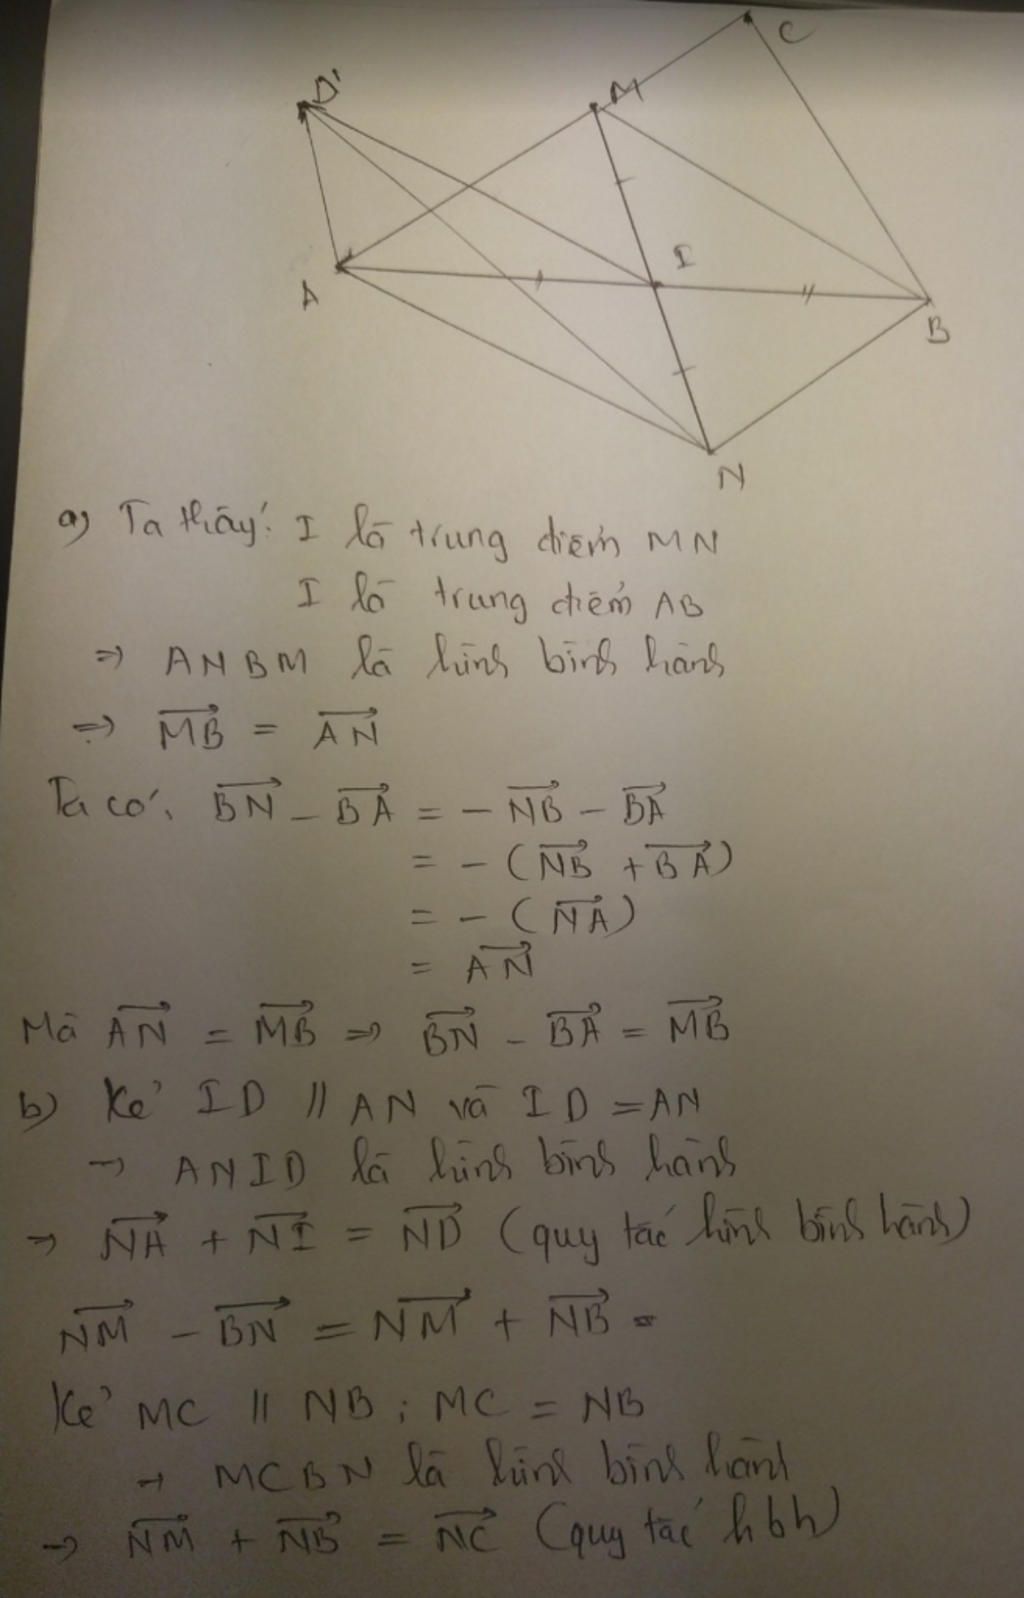 D'
M
C
I
A
B
N
a) Ta thấy: I là trung điểm MN
I là trung điểm AB
⇒ ANBM là hình bình hành
⇒ \overrightarrow{MB} = \overrightarrow{AN}
Ta có: \overrightarrow{BN} - \overrightarrow{BA} = - \overrightarrow{NB} - \overrightarrow{BA}
= - (\overrightarrow{NB} + \overrightarrow{BA})
= - (\overrightarrow{NA})
= \overrightarrow{AN}
Mà \overrightarrow{AN} = \overrightarrow{MB} ⇒ \overrightarrow{BN} - \overrightarrow{BA} = \overrightarrow{MB}
b) Kẻ ID // AN và ID = AN
→ ANID là hình bình hành
⇒ \overrightarrow{NA} + \overrightarrow{NI} = \overrightarrow{ND} (quy tắc hình bình hành)
\overrightarrow{NM} - \overrightarrow{BN} = \overrightarrow{NM} + \overrightarrow{NB} =
Kẻ MC // NB ; MC = NB
→ MCBN là hình bình hành
→ \overrightarrow{NM} + \overrightarrow{NB} = \overrightarrow{NC} (quy tắc hbh)